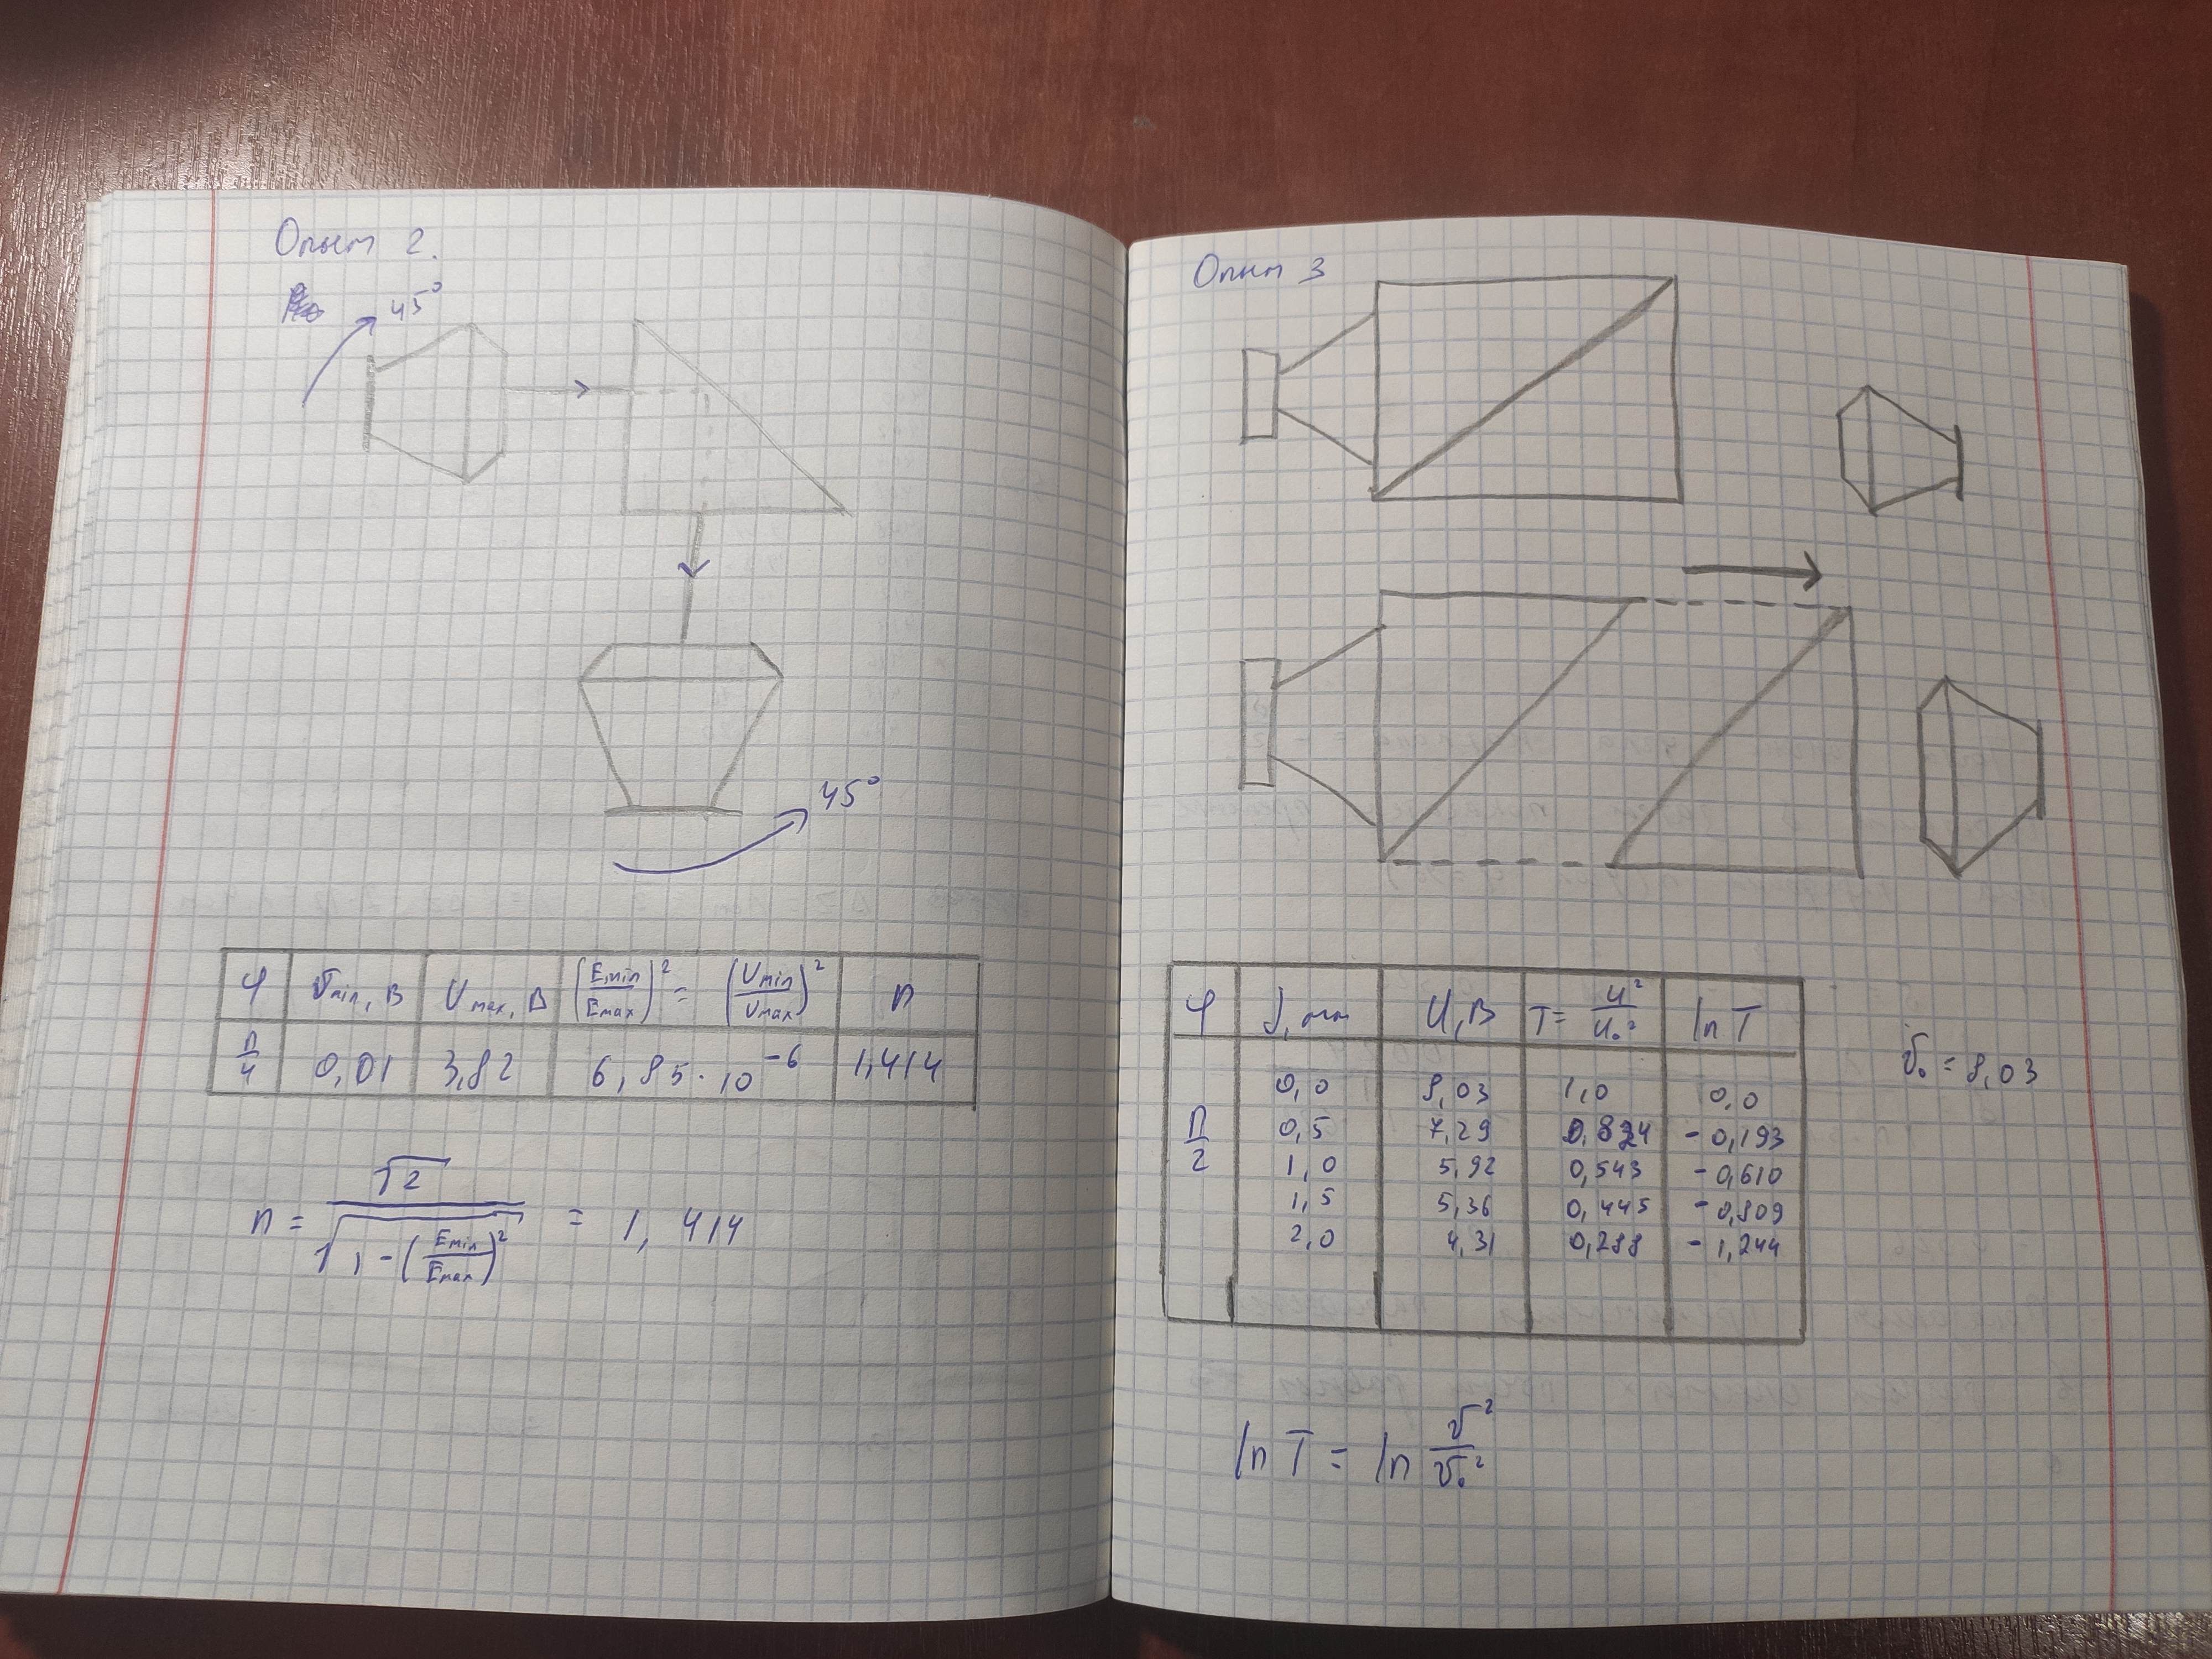 Опыт 2.
45°
45°
φ | Umin, В | Umax, В | (Emin/Emax)² = (Umin/Umax)² | n
π/4 | 0,01 | 3,82 | 6,85·10⁻⁶ | 1,414
n = √2 / √(1-(Emin/Emax)²) = 1,414
Опыт 3
φ | l, мм | U, В | T = U²/U₀² | ln T
U₀ = 8,03
π/2
0,0 | 8,03 | 1,0 | 0,0
0,5 | 7,29 | 0,824 | -0,193
1,0 | 5,92 | 0,543 | -0,610
1,5 | 5,36 | 0,445 | -0,809
2,0 | 4,31 | 0,288 | -1,244
ln T = ln U²/U₀²